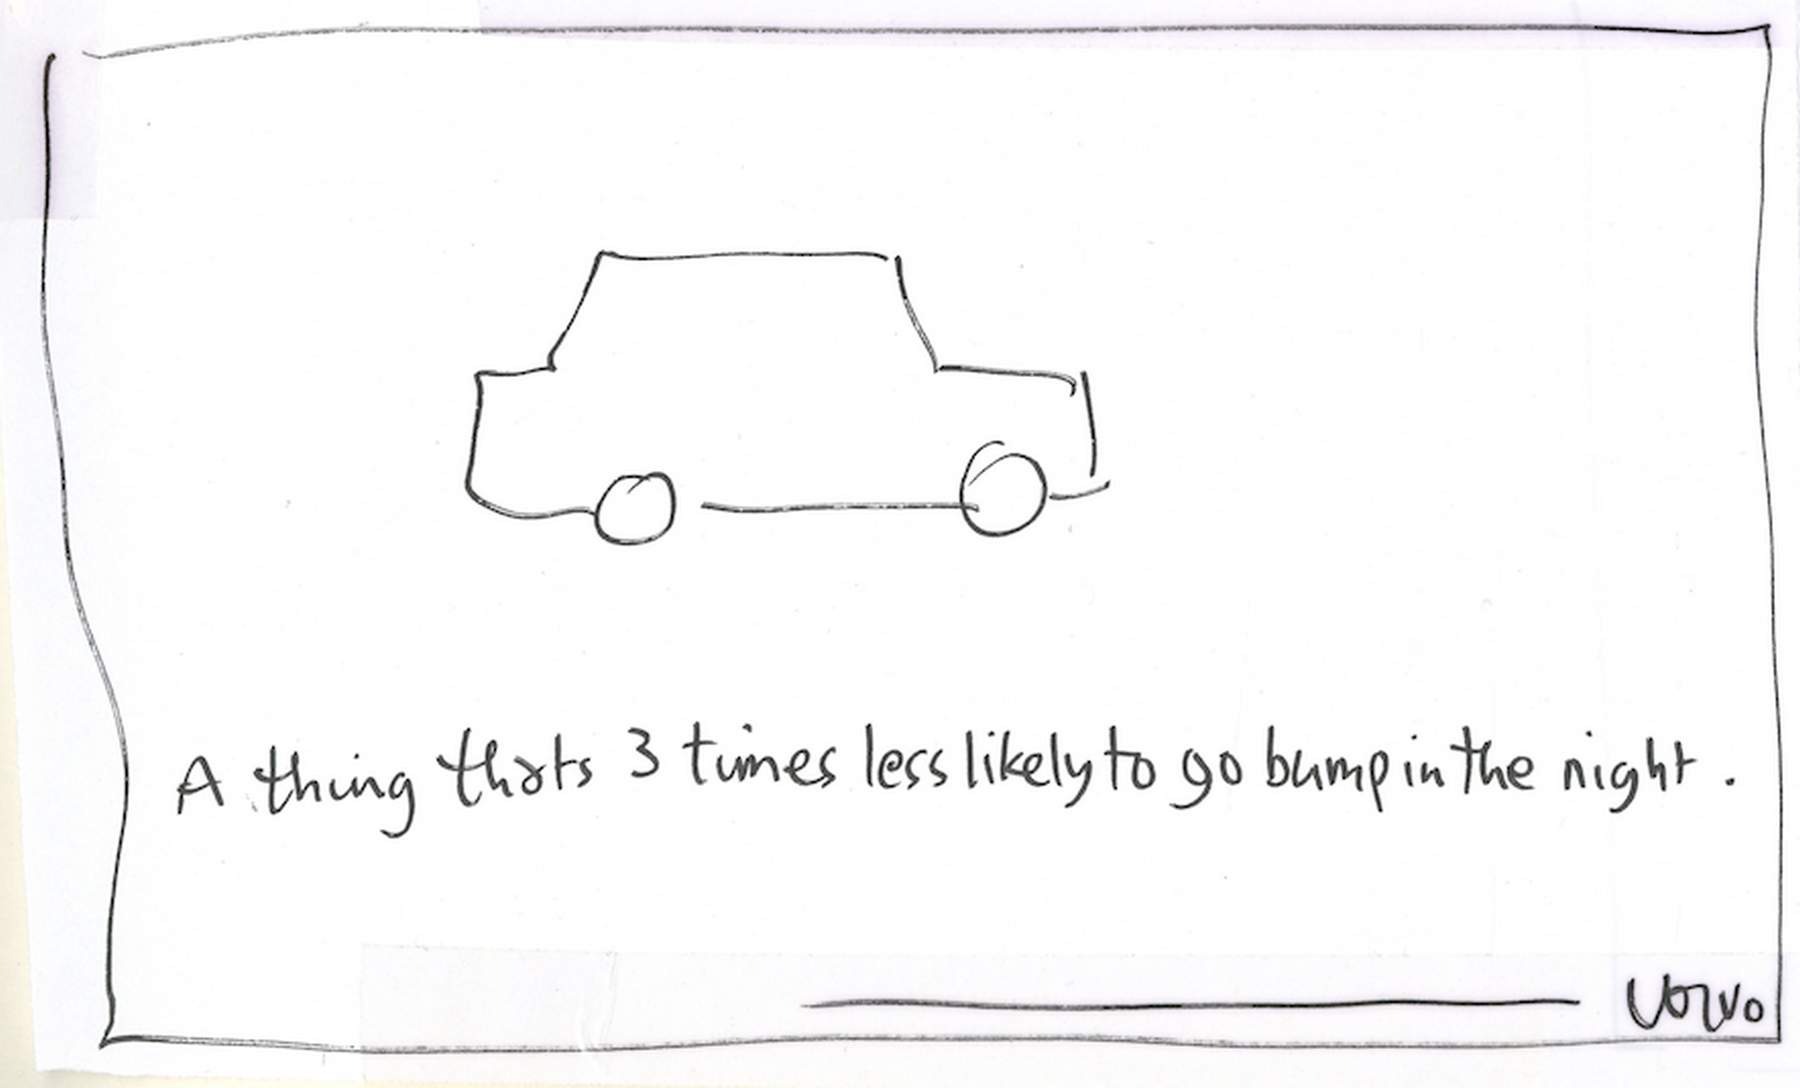 A thing thats 3 times less likely to go bump in the night.
Volvo